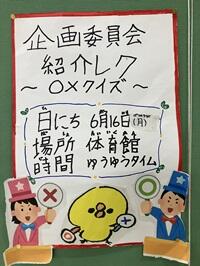 企画委員会
紹介レク
～○×クイズ～
日にち 6月16日(月)
場所 体育館
時間 ゆうゆうタイム